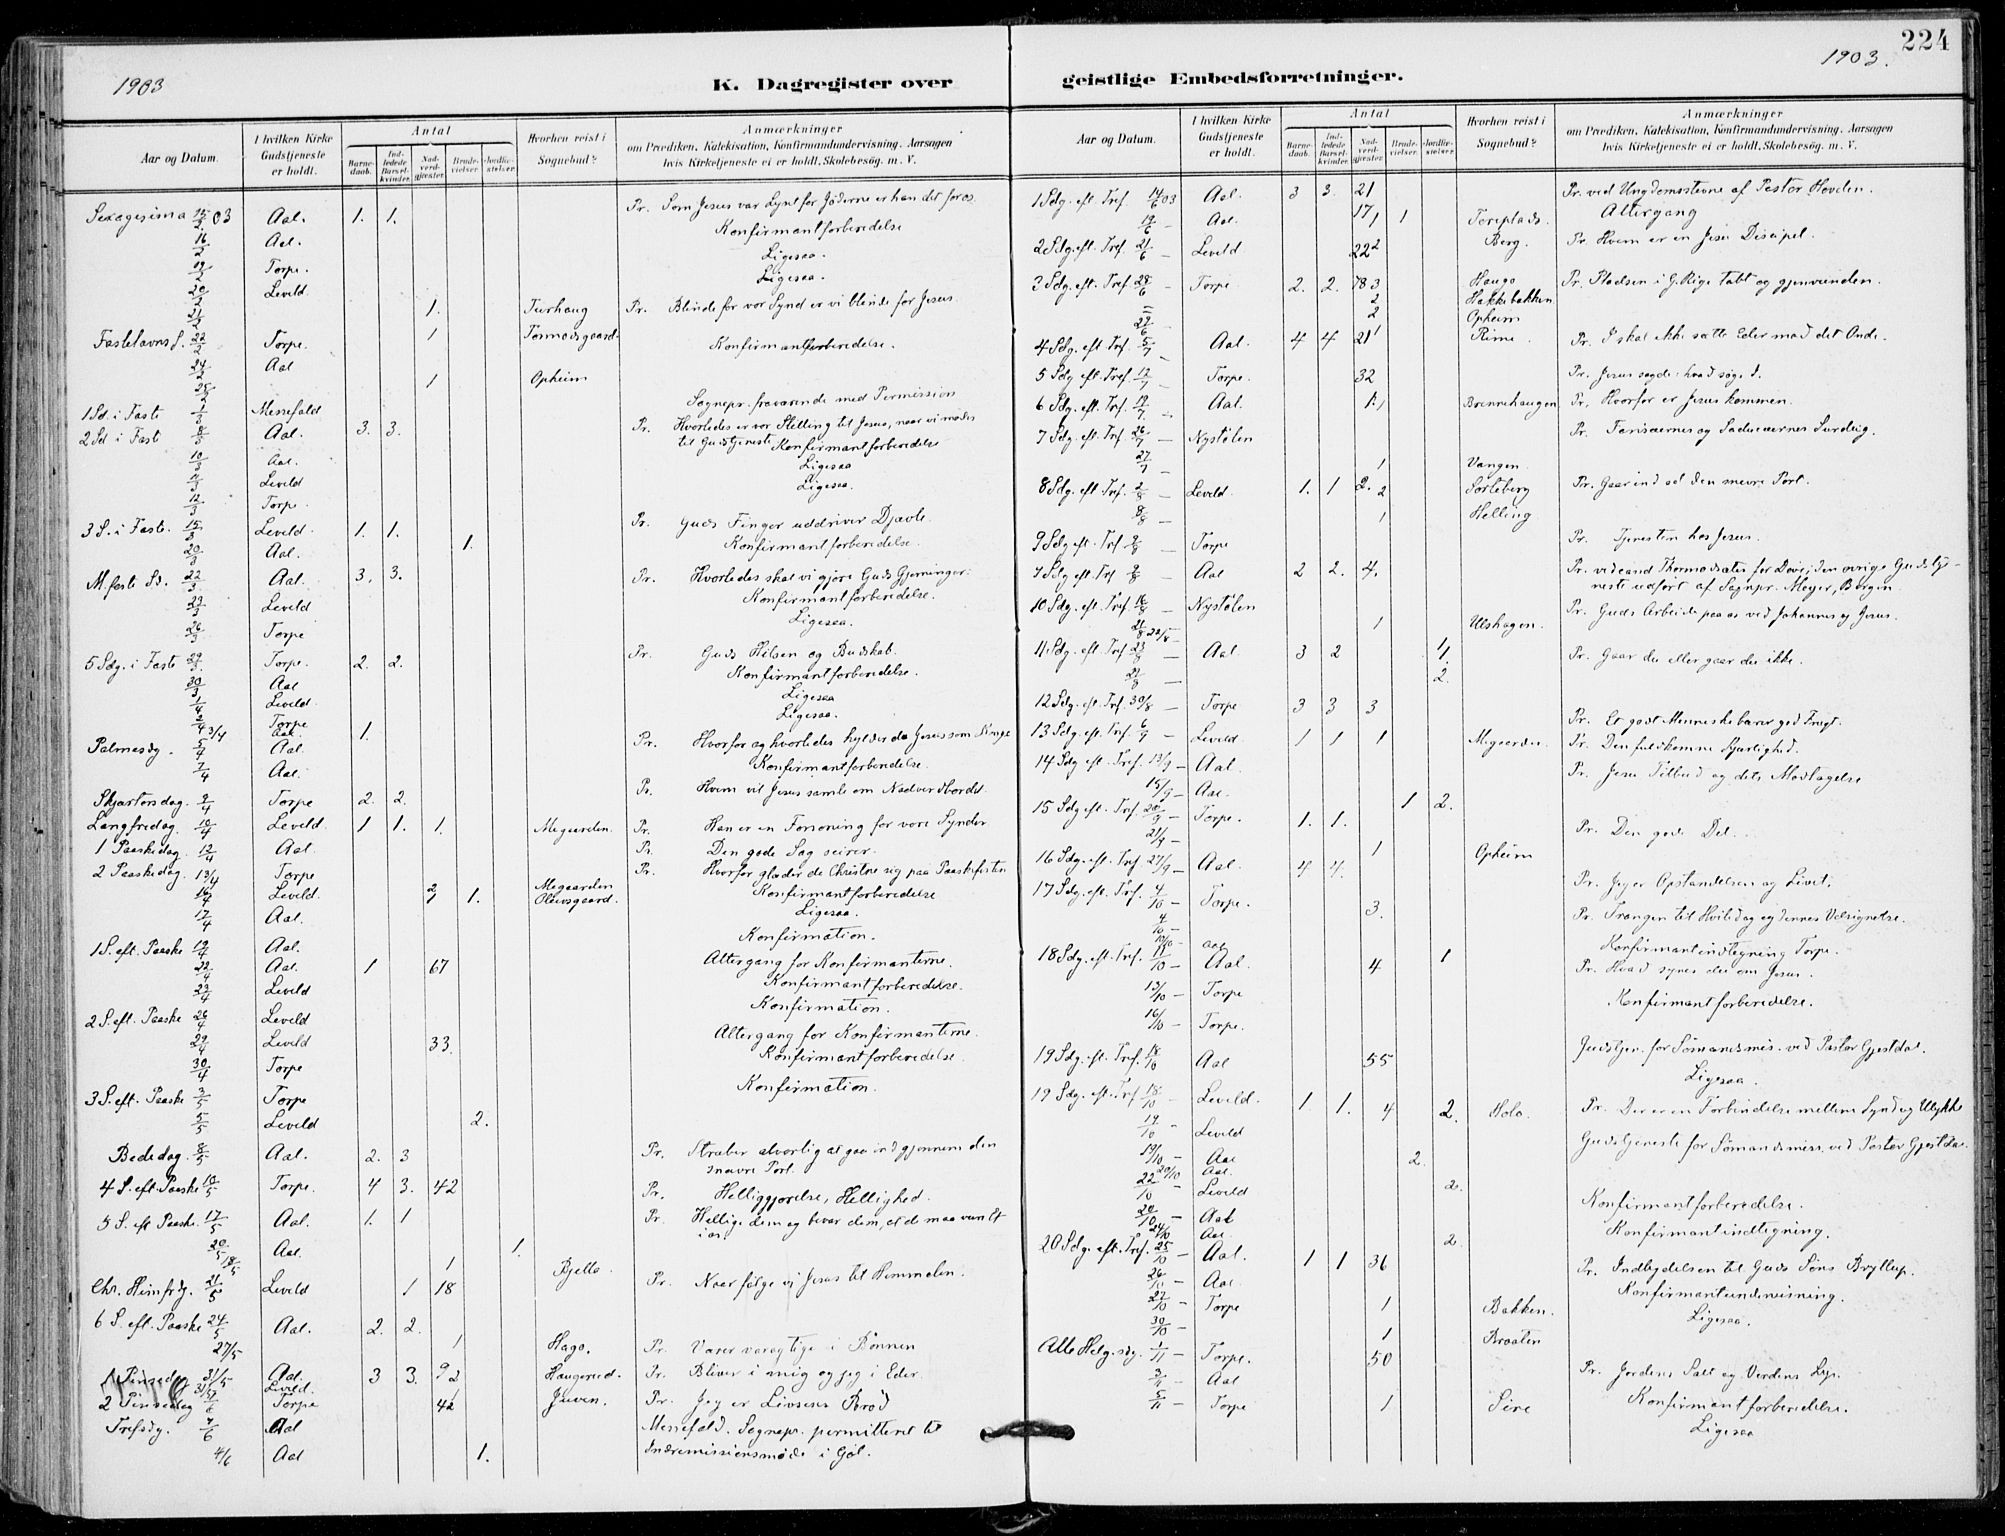 1903
K. Dagregister over
Aar og Datum.
I hvilken Kirke Gudstjeneste er holdt.
Antal
Barne-daab.
Ind-ledede Barsel-kvinder.
Nad-verd-gjæster.
Brude-vielser.
Jordfæ-stelser.
Hvorhen reist i Sognebud?
Anmærkninger
om Prædiken, Katekisation, Konfirmandundervisning, Aarsagen
hvis Kirketjeneste ei er holdt, Skolebesøg. m. V.
Sexagesima 15/2 03 Aal. 1. 1. Pr. Som Jesus var Lyset for Jøderne er han det for os
16/2 Aal. Konfirmantforberedelse
19/2 Torpe. Ligesaa.
20/2 Leveld Ligesaa.
21/2 1. Turhaug
Fastelavns S. 22/2 Torpe. 1 Tormodsgaard Pr. Blinde for vor Synd er vi blinde for Jesus
24/2 Aal Konfirmantforberedelse.
25/2 1 Opheim
1 Sd. i Faste 1/3 Messefald Sognepr. fraværende med Permission
2 Sd i Fast 8/3 Aal. 3. 3. Pr. Hvorledes er vor Stilling til Jesus, naar vi møder
til Gudstjeneste
10/3 Aal. Konfirmantforberedelse
11/3 Leveld Ligesaa
12/3 Torpe. Ligesaa.
3 S. i Faste 15/3 Leveld. 1. 1. Pr. Guds Finger uddriver Djævle.
20/3 Aal. 1. Konfirmantforberedelse.
M. faste Sd. 22/3 Aal. 3. 3. Pr. Hvorledes skal vi gjøre Guds Gjerninger.
23/3 Leveld Konfirmantforberedelse.
26/3 Torpe Ligesaa.
5 Sdg. i Faste 29/3 Torpe. 2. 2. Pr. Guds Hilsen og Budskab.
30/3 Aal Konfirmantforberedelse.
1/4 Leveld. Ligesaa
2/4 Torpe Ligesaa.
3/4 Aal. 1.
Palmesdg. 5/4 Aal. Pr. Hvorfor og hvorledes hylder du Jesus som Konge
7/4 Aal. Konfirmantforberedelse.
Skjærtorsdag 9/4 Torpe 2. 2. Pr. Hvem vil Jesus samle om Nadverdbordet.
Langfredag. 10/4 Leveld. 1 1. 1. Megaarden. Pr. Han er en Forsoning for vore Synder
1 Paaskedag 12/4 Aal. Pr. Den gode Sag seirer.
2 Paaskedag. 13/4 Torpe Pr. Hvorfor glæder de Christne sig paa Paaskefesten
16/4 Leveld. 2 1. Megaarden Konfirmantforberedelse
17/4 Aal. Ligesaa.
1 S. eft. Paaske 19/4 Aal. Konfirmation.
22/4 Aal. 1 67 Altergang for Konfirmanterne.
23/4 Leveld Konfirmantforberedelse.
2 S. eft. Paaske 26/4 Leveld Konfirmation.
29/4 Leveld 33. Altergang for Konfirmanterne.
30/4 Torpe Konfirmantforberedelse.
3 S. eft. Paaske 3/5 Torpe Konfirmation.
5/5 Leveld 2.
Bededag. 8/5 Aal. 2. 3 Pr. Stræber alvorlig at gaa ind gjennem den
snævre Port.
4 S. eft. Paaske 10/5 Torpe. 4 3. 42 Pr. Helliggjørelse, Hellighed.
5 S. eft Paaske. 17/5 Aal. 1. 1 Pr. Hellige dem og bevar dem, at de maa være Et
i os.
20/5 Aal. 1.
19/5 1 Bjella.
Chr. Himfdg. 21/5 Leveld 1 18 Pr. Naar følge vi Jesus til Himmelen.
6 S. eft. Paaske 24/5 Aal. 2. 2.
27/5 1 Hago. Pr. Værer varagtige i Bønnen
1 Pinsedag 31/5 Aal. 3 3. 92 Haugerud. Pr. Bliver i mig og jeg i Eder.
31/5 Leveld.
2 Pinsedag Torpe 42 Juven. Pr. Jeg er Livsens Brød
Trefsdg. 7/6 Aal Messefald. Sognepr. permitteret til
4/6 Aal 1. Indremissionsmøde i Gol.
224
1903.
geistlige Embedsforretninger.
Aar og Datum.
I hvilken Kirke Gudstjeneste er holdt.
Antal
Barne-daab.
Ind-ledede Barsel-kvinder.
Nad-verd-gjæster.
Brude-vielser.
Jordfæ-stelser.
Hvorhen reist i Sognebud?
Anmærkninger
om Prædiken, Katekisation, Konfirmandundervisning, Aarsagen
hvis Kirketjeneste ei er holdt, Skolebesøg. m. V.
1 Sdg. eft. Tref. 14/6 03 Aal. 3 3. 21 Pr. ved Ungdomsstevne af Pastor Hovden.
19/6 – Aal. 17 1 1 Toreplads. Altergang
2 Sdg. eft. Tref. 21/6 – Leveld 22 2 Berg. Pr. Hvem er en Jesu Discipel.
3 Sdg. eft. Tref. 28/6 – Torpe. 2. 2. 78 3 Haugo Pr. Pladsen i G. Rige tabt og gjenvunden.
2 Hakkebakken
29/6 – 2 Opheim
4 Sdg. eft. Tref. 5/7 – Aal. 4 4 21 1 Rime. Pr. I skal ikke sætte Eder mod det Onde.
5 Sdg eft. Tref. 12/7 – Torpe. 32 Pr. Jesus sagde: hvad søge I.
6 Sdg. eft. Tref. 19/7. – Aal. 1. 1 Brennehaugen Pr. Hvorfor er Jesus kommen.
7 Sdg. eft. Tref. 26/7 – Nystølen Pr. Farisæernes og Saducæernes Surdeig.
27/7 – 1 Vangen.
8 Sdg. eft. Tref. 2/8 – Leveld. 1. 1 2. 2 Sørleberg Pr. Gaar ind ad den snevre Port.
8/8 – 1 Helling
9 Sdg eft. Tref 9/8 – Torpe Pr. Tjenesten hos Jesus.
9 Sdg. eft. Tref 9/8 – Aal 2 2. 4. Pr. ved cand Thormodsæter for Døve; den øvrige Gudstje-
neste udført af Sognpr. Meyer, Bergen.
10 Sdg. eft. Tref. 16/8 – Nystølen Pr. Guds Arbeide paa os ved Johannes og Jesus.
21/8 22/8 – 1 Ulshagen.
11. Sdg. eft. Tref 23/8 – Aal. 3 2 1. Pr. Gaar du eller gaar du ikke.
27/8 – 2.
12 Sdg. eft. Tref. 30/8 – Torpe 3 3 3 Pr. Et godt Menneske bærer god Frugt.
13 Sdg. eft. Tref. 6/9 – Leveld. 1 1 1 Megaarden. Pr. Den fuldkomne Kjærlighed.
14 Sdg eft. Tref. 13/9 – Aal. Pr. Jesu Tilbud og dets Modtagelse
15/9 – Aal. 1 2.
15 Sdg. eft. Tref. 20/9 – Torpe. 1. 1. Pr. Den gode Del.
21/9 – 1 Opheim
16 Sdg. eft. Tref 27/9 – Aal. 4 4. Pr. Jeg er Opstandelsen og Livet.
17 Sdg. eft. Tref. 4/10 – Torpe. 3. Pr. Trangen til Hviledag og dennes Velsignelse.
4/10 – Konfirmantindtegning Torpe.
10/10 – Aal 1
18 Sdg. eft. Tref. 11/10 – Aal. 4 Pr. Hvad synes du om Jesus.
13/10 – Torpe Konfirmantforberedelse.
16/10 – Torpe.
19 Sdg. eft. Tref. 18/10 Aal 55 Gudstjen. for Sømandsmis. ved Pastor Gjestdal.
Ligesaa.
19 Sdg. eft. Tref 18/10 – Leveld. 1. 1. 4 2. Holo. Pr. Der er en Forbindelse mellem Synd og Ulykke
19/10 – Leveld Gudstjeneste for Sømandsmiss. ved Pastor Gjestdal.
19/10 – Aal 2.
20/10 Aal.
22/10 – Leveld 2. Konfirmantforberedelse.
20/10 – Aal Konfirmantindtegning.
24/10 Aal 2.
20 Sdg. eft. Tref. 25/10 – Aal. 1 1 36 Pr. Indbydelsen til Guds Søns Bryllup.
26/10 – Aal. Konfirmantundervisning.
27/10 – Torpe 1 Bakken. Ligesaa.
30/10 – 1 Braaten
Alle Helg. sdg. 1/11 – Torpe. 50 Pr. Jordens Salt og Verdens Lys.
3/11 – Aal Konfirmantforberedelse.
5/11 – Torpe 1 Sire Ligesaa